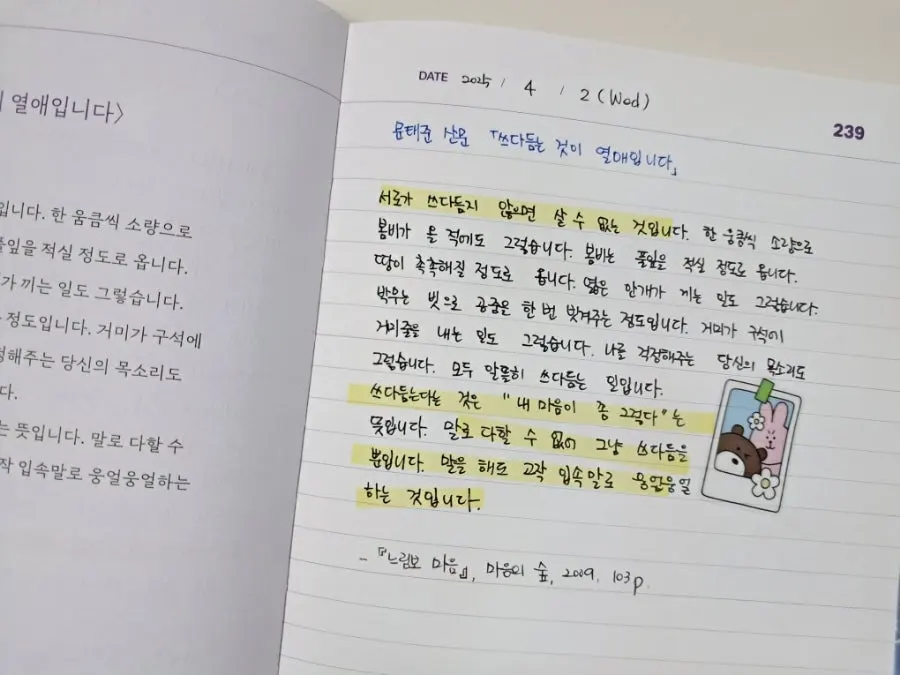 열애입니다〉
입니다. 한 움큼씩 소량으로
풀잎을 적실 정도로 옵니다.
가 끼는 일도 그렇습니다.
정도입니다. 거미가 구석에
정해주는 당신의 목소리도
다.
는 뜻입니다. 말로 다할 수
작 입속말로 웅얼웅얼하는
DATE 2025 / 4 / 2 (Wed)
239
문태준 산문 「쓰다듬는 것이 열애입니다」
서로가 쓰다듬지 않으면 살 수 없는 것입니다. 한 움큼씩 소량으로
봄비가 올 적에도 그렇습니다. 봄비는 풀잎을 적실 정도로 옵니다.
땅이 촉촉해질 정도로 옵니다. 엷은 안개가 끼는 일도 그렇습니다.
박무는 빗으로 공중을 한 번 빗겨주는 정도입니다. 거미가 구석에
거미줄을 내는 일도 그렇습니다. 나를 걱정해주는 당신의 목소리도
그렇습니다. 모두 알뜰히 쓰다듬는 일입니다.
쓰다듬는다는 것은 "내 마음이 좀 그렇다"는
뜻입니다. 말로 다할 수 없어 그냥 쓰다듬을
뿐입니다. 말을 해도 고작 입속말로 웅얼웅얼
하는 것입니다.
- 『느림보 마음』, 마음의 숲, 2009, 103p.